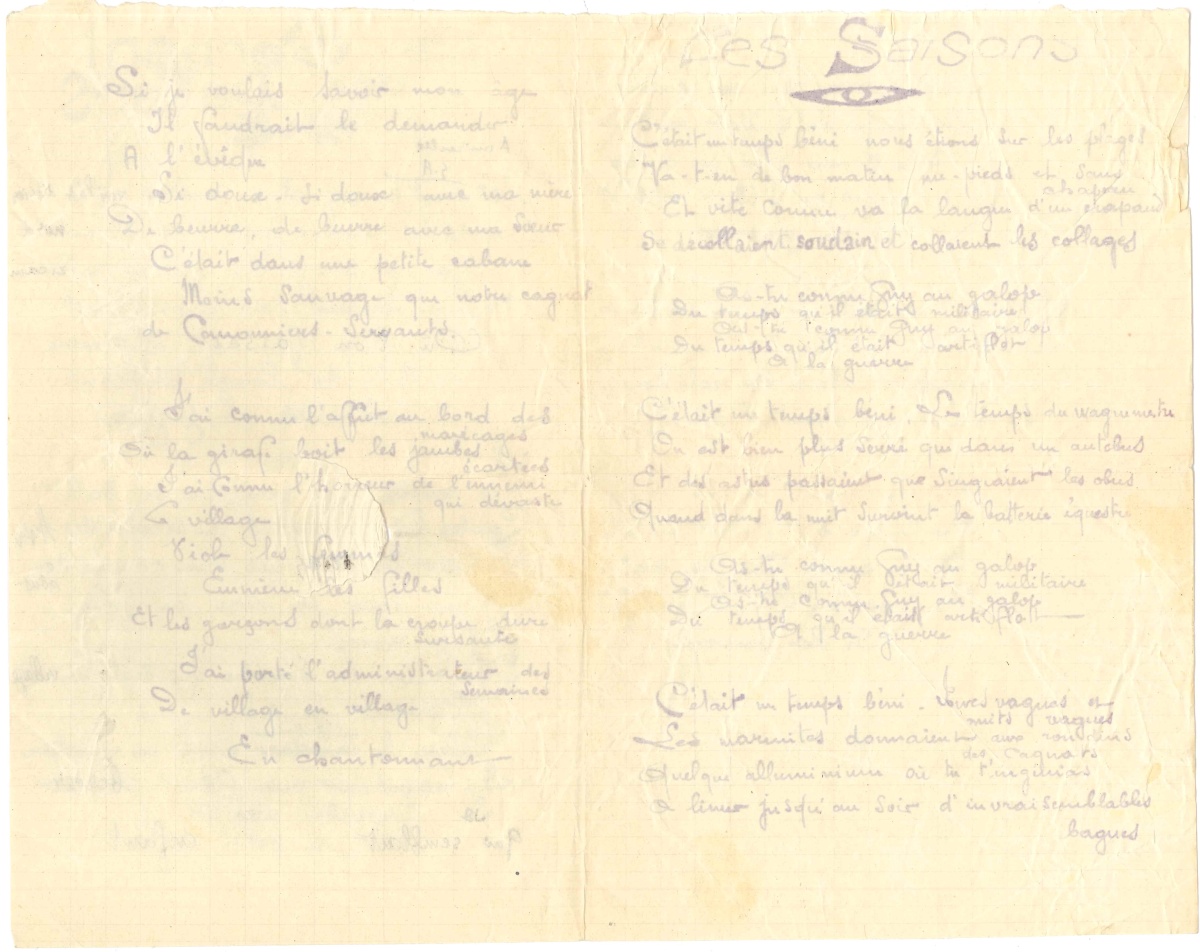 Si je voulais savoir mon age
Il faudrait le demander
A l'évêque
Si doux. Si doux avec ma mère
De beurre, de beurre avec ma Sœur
C'était dans une petite cabane
Moins sauvage que notre cagnat
de Canonniers-Servants.
J'ai connu l'affut au bord des
marécages
Où la girafe boit les jambes
écartées
J'ai connu l'horreur de l'ennemi
qui dévaste
Le village
Viole les femmes
Emmène les filles
Et les garçons dont la croupe dure
sursaute
J'ai porté l'administrateur des
semaines
De village en village
En chantonnant
Les Saisons
C'était un temps béni nous étions sur les plages
Va-t-en de bon matin nu-pieds et sans
chapeau
Et vite comme va la langue d'un crapaud
Se décollaient soudain et collaient les collages
As-tu connu Guy au galop
Du temps qu'il était militaire
As-tu connu Guy au galop
Du temps qu'il était artiflot
A la guerre
C'était un temps béni. Le temps du vaguemestre
On est bien plus serré que dans un autobus
Et des astres passaient que singeaient les obus
Quand dans la nuit survint la batterie équestre
As-tu connu Guy au galop
Du temps qu'il était militaire
As-tu connu Guy au galop
Du temps qu'il était artiflott
A la guerre
C'était un temps béni. Jours vagues et
nuits vagues
Les marmites donnaient aux rondins
des cagnats
Quelque alluminium où tu t'ingénias
A limer jusqu'au soir d'invraisemblables
bagues